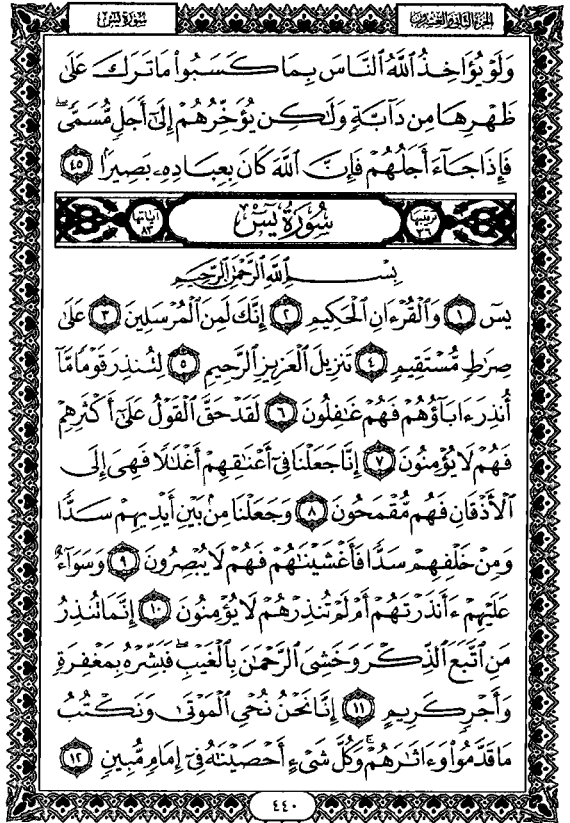 سورة يس
الجزء الثاني والعشرون
وَلَوْ يُؤَاخِذُ ٱللَّهُ ٱلنَّاسَ بِمَا كَسَبُوا۟ مَا تَرَكَ عَلَىٰ
ظَهْرِهَا مِن دَآبَّةٍ وَلَٰكِن يُؤَخِّرُهُمْ إِلَىٰٓ أَجَلٍ مُّسَمًّى ۖ
فَإِذَا جَآءَ أَجَلُهُمْ فَإِنَّ ٱللَّهَ كَانَ بِعِبَادِهِۦ بَصِيرًۢا ٤٥
ترتيبها ٣٦ سُورَةُ يسٓ آياتها ٨٣
بِسْمِ ٱللَّهِ ٱلرَّحْمَٰنِ ٱلرَّحِيمِ
يسٓ ١ وَٱلْقُرْءَانِ ٱلْحَكِيمِ ٢ إِنَّكَ لَمِنَ ٱلْمُرْسَلِينَ ٣ عَلَىٰ
صِرَٰطٍ مُّسْتَقِيمٍ ٤ تَنزِيلَ ٱلْعَزِيزِ ٱلرَّحِيمِ ٥ لِتُنذِرَ قَوْمًا مَّآ
أُنذِرَ ءَابَآؤُهُمْ فَهُمْ غَٰفِلُونَ ٦ لَقَدْ حَقَّ ٱلْقَوْلُ عَلَىٰٓ أَكْثَرِهِمْ
فَهُمْ لَا يُؤْمِنُونَ ٧ إِنَّا جَعَلْنَا فِىٓ أَعْنَٰقِهِمْ أَغْلَٰلًا فَهِىَ إِلَى
ٱلْأَذْقَانِ فَهُم مُّقْمَحُونَ ٨ وَجَعَلْنَا مِنۢ بَيْنِ أَيْدِيهِمْ سَدًّا
وَمِنْ خَلْفِهِمْ سَدًّا فَأَغْشَيْنَٰهُمْ فَهُمْ لَا يُبْصِرُونَ ٩ وَسَوَآءٌ
عَلَيْهِمْ ءَأَنذَرْتَهُمْ أَمْ لَمْ تُنذِرْهُمْ لَا يُؤْمِنُونَ ١٠ إِنَّمَا تُنذِرُ
مَنِ ٱتَّبَعَ ٱلذِّكْرَ وَخَشِىَ ٱلرَّحْمَٰنَ بِٱلْغَيْبِ ۖ فَبَشِّرْهُ بِمَغْفِرَةٍ
وَأَجْرٍ كَرِيمٍ ١١ إِنَّا نَحْنُ نُحْىِ ٱلْمَوْتَىٰ وَنَكْتُبُ
مَا قَدَّمُوا۟ وَءَاثَٰرَهُمْ ۚ وَكُلَّ شَىْءٍ أَحْصَيْنَٰهُ فِىٓ إِمَامٍ مُّبِينٍ ١٢
٤٤٠